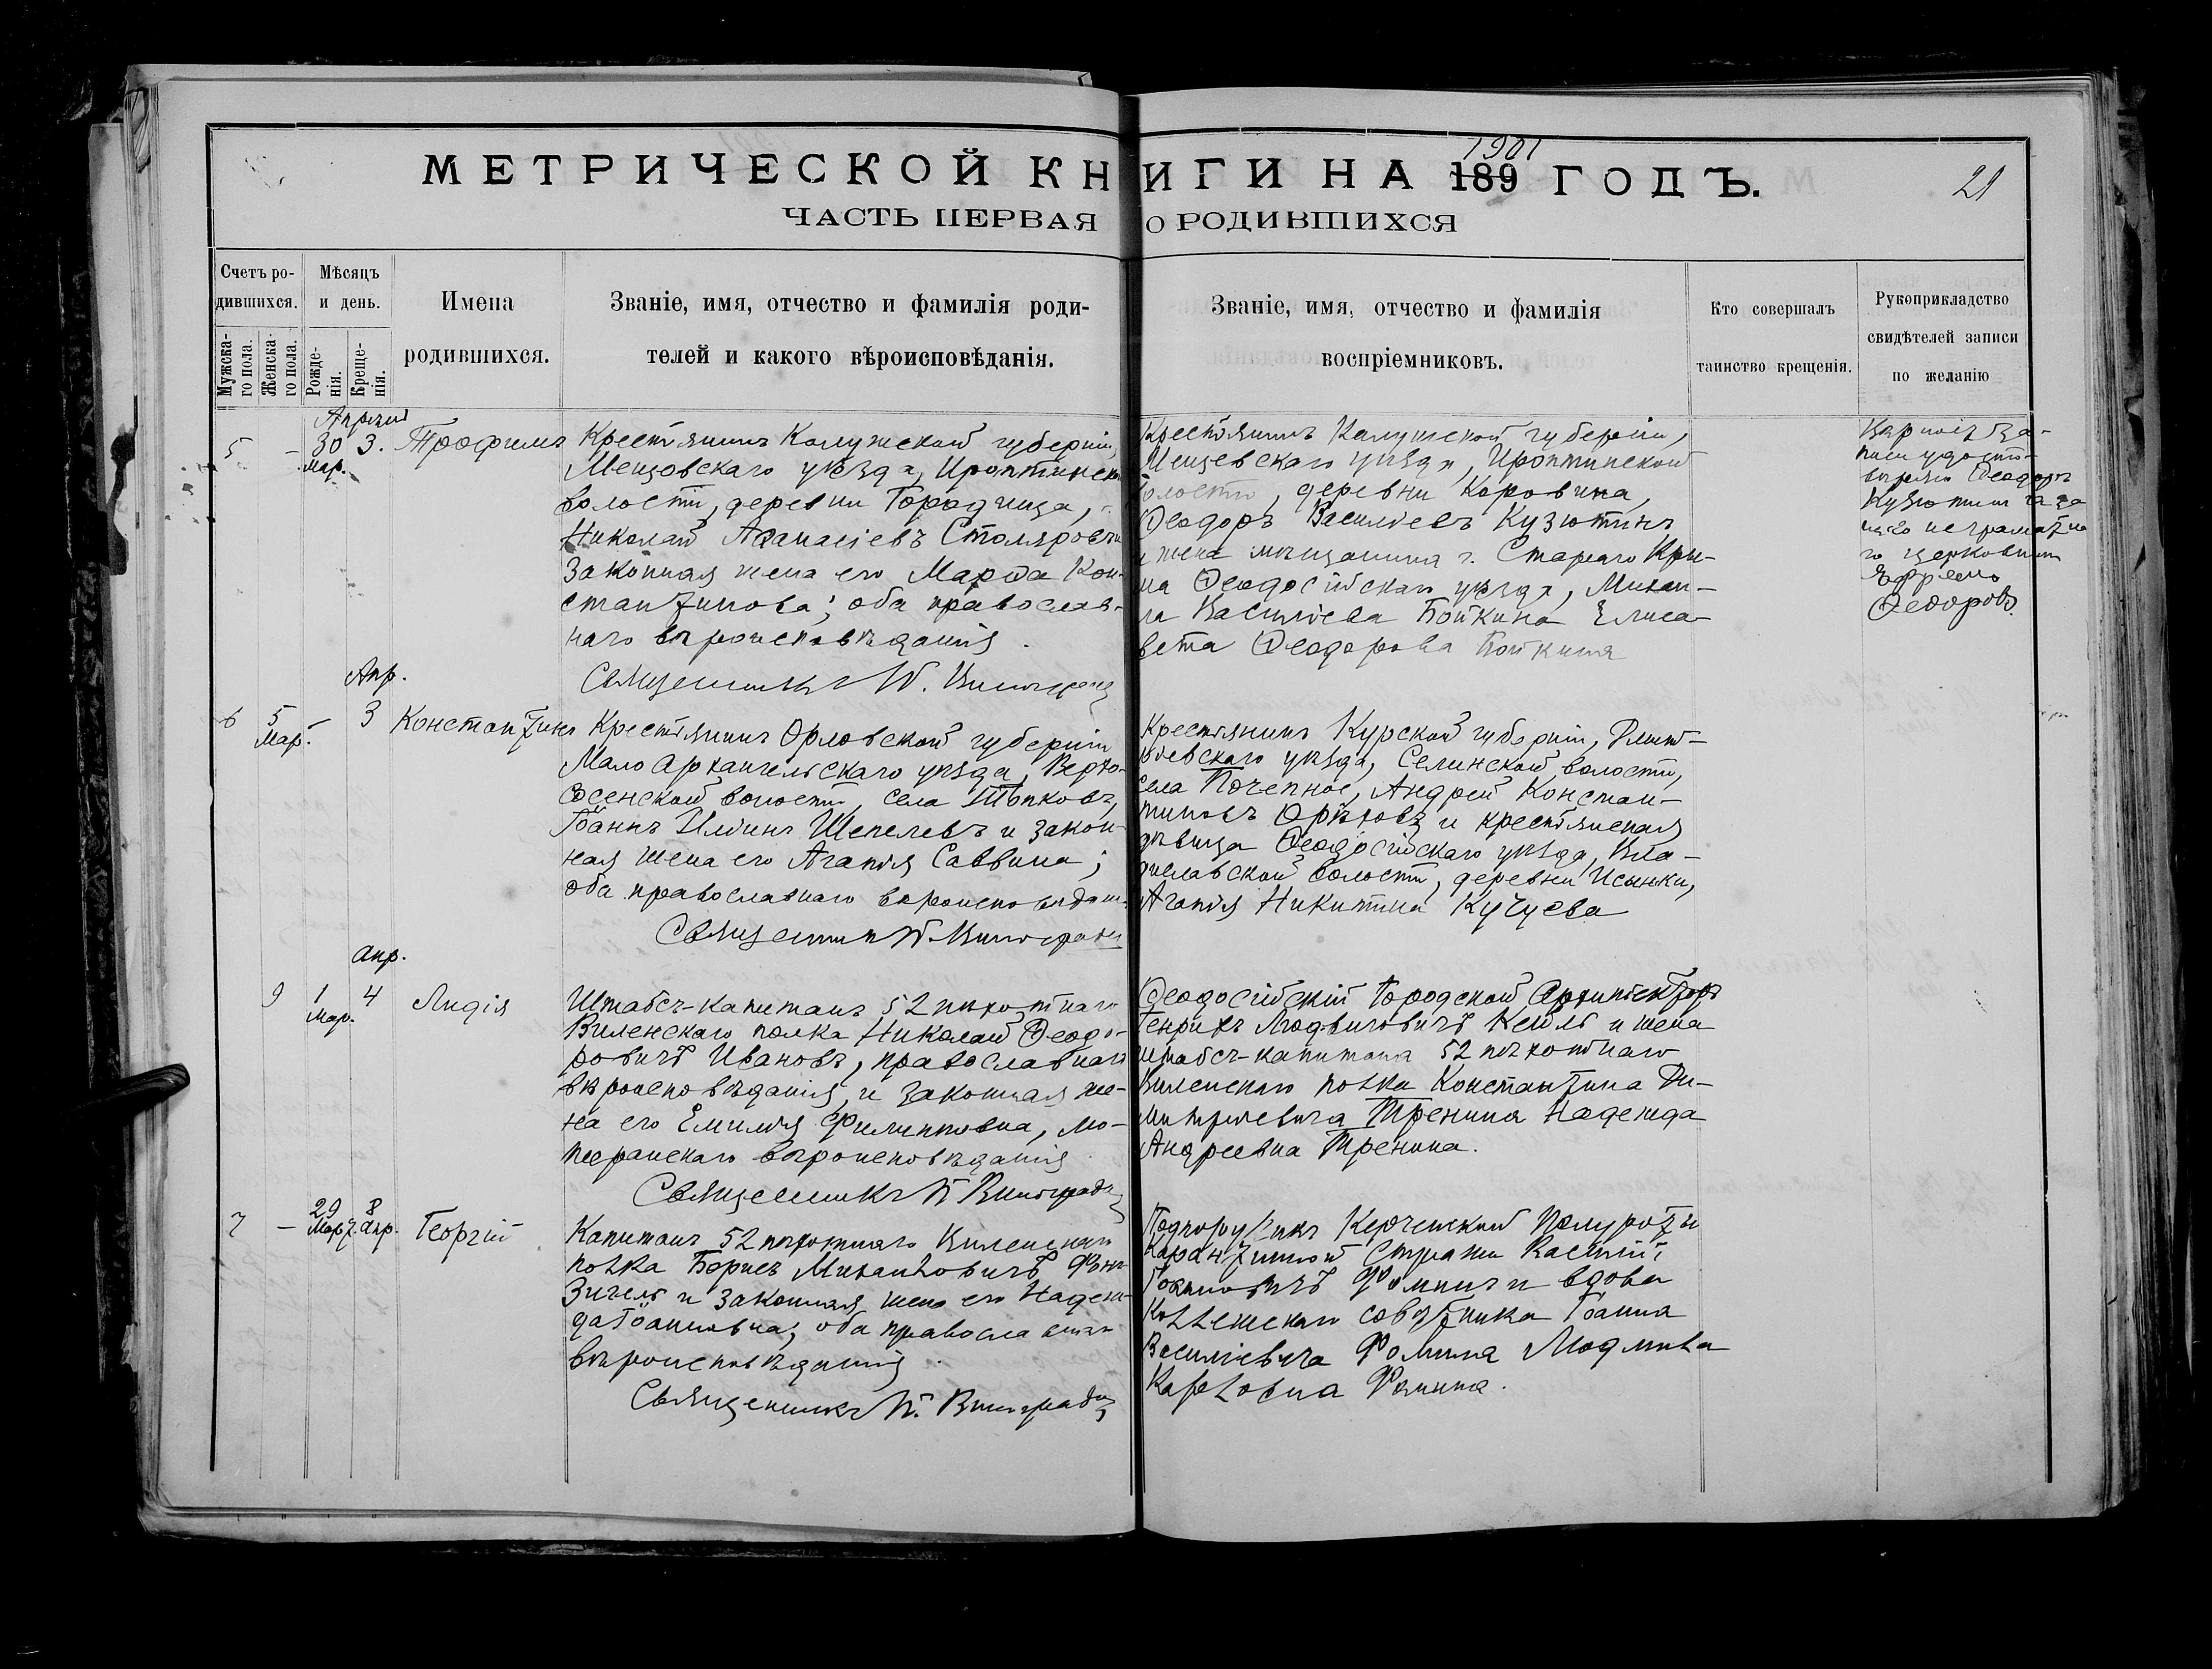 МЕТРИЧЕСКОЙ КНИГИ НА 189 1901 ГОДЪ.
21
ЧАСТЬ ПЕРВАЯ О РОДИВШИХСЯ
Счетъ ро-
дившихся.
Мужска-
го пола.
Женска-
го пола.
Мѣсяцъ
и день.
Рожде-
нія.
Креще-
нія.
Имена
родившихся.
Званіе, имя, отчество и фамилія роди-
телей и какого вѣроисповѣданія.
Званіе, имя, отчество и фамилія
воспріемниковъ.
Кто совершалъ
таинство крещенія.
Рукоприкладство
свидѣтелей записи
по желанію
Апрѣля
5 - 30 3. Трофимъ
Мар.
Крестьянинъ Калужской губерніи,
Мещовскаго уѣзда,
волости, деревни Городчица,
Николай Афанасіевъ
Законная жена его Марфа Кон-
стантинова; оба православ-
наго вѣроисповѣданія.
Священникъ
Крестьянинъ Калужской губерніи,
Мещевскаго уѣзда,
волости, деревни Коровина,
Ѳеодоръ Василіевъ Кузютинъ
и жена мѣщанина г. Стараго Кры-
ма Ѳеодосійскаго уѣзда, Михаи-
ла Василіева Бойкина Елиса-
вета Ѳеодорова Бойкина
Вѣрность за-
писи удосто-
вѣряю Ѳеодоръ
Кузютинъ а за
него неграмотна
го церковный
Ефремъ
Ѳеодоровъ.
Апр.
6 5 - 3 Константинъ
Мар.
Крестьянинъ Орловской губерніи
Мало Архангельскаго уѣзда, Верхо-
сосенской волости, села Топковъ,
Іоаннъ Ильинъ Шепелевъ и закон-
ная жена его Агапія Саввина;
оба православнаго вѣроисповѣдан.
Священникъ
Крестьянинъ Курской губерніи, Дмит-
ріевскаго уѣзда, Селинской волости,
села Почепное, Андрей Констан-
тиновъ Орѣховъ и крестьянская
дѣвица Ѳеодосійскаго уѣзда, Вла-
диславской волости, деревни
Агапія Никитина Кучуева
Апр.
9 1 4 Лидія
Мар.
Штабсъ-капитанъ 52 пѣхотнаго
Виленскаго полка Николай Ѳеодо-
ровичъ Ивановъ, православнаго
вѣроисповѣданія, и законная же-
на его Емилія Филипповна, лю-
теранскаго вѣроисповѣданія
Священникъ
Ѳеодосійскій Городской Архитекторъ
Генрихъ Людвиговичъ Кейль и жена
штабсъ-капитана 52 пѣхотнаго
Виленскаго полка Константина Ди-
митріевича Тренина Надежда
Андреевна Тренина.
7 - 29 8 Георгій
Март. Апр.
Капитанъ 52 пѣхотнаго Виленскаго
полка Борисъ Михайловичъ Фонъ
Зигель и законная жена его Надеж-
да Іоанновна, оба православнаго
вѣроисповѣданія.
Священникъ
Подпоручикъ Керченской Полуроты
Карантинной Стражи Василій
Іоанновичъ Фоминъ и вдова
Коллежскаго совѣтника Іоанна
Василіевича Фомина Людмила
Карловна Фомина.